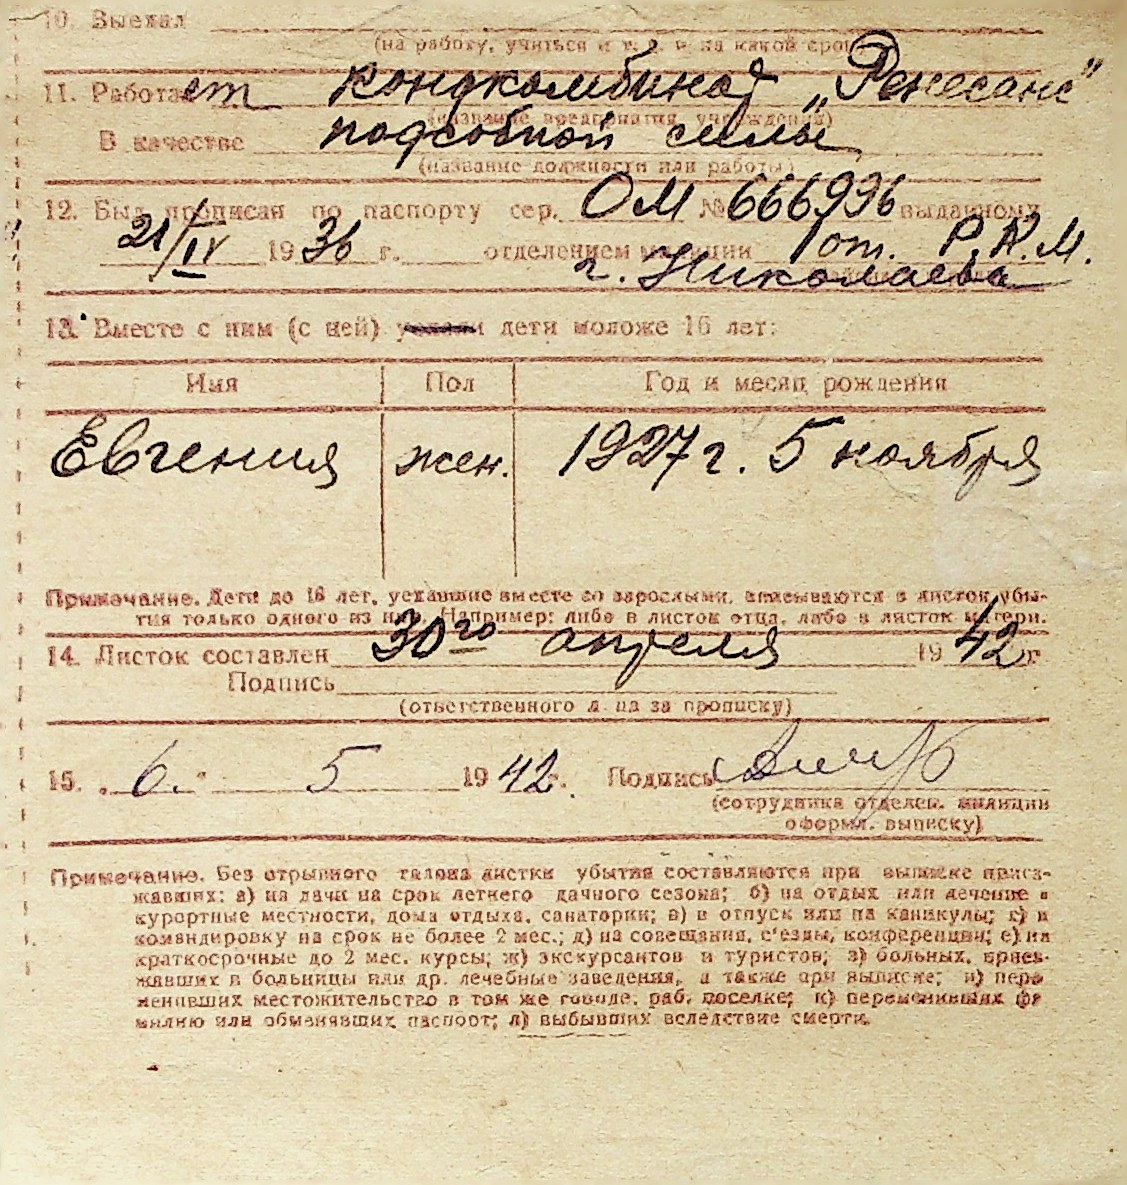 10. Выехал
(на работу, учиться и т. д. и на какой срок)
11. Работает кондкомбинат „Ренесанс"
(название предприятия, учреждения)
В качестве подсобной силы
(название должности или работы)
12. Был прописан по паспорту сер. ОМ № 666996 выданному
21/IV 1936 г. отделением милиции 1 от. Р.К.М.
г. Николаева
13. Вместе с ним (с ней) дети моложе 16 лет:
Имя Пол Год и месяц рождения
Евгения жен. 1927 г. 5 ноября
Примечание. Дети до 16 лет, уехавшие вместе со взрослыми, вписываются в листок убы-
тия только одного из них. Например: либо в листок отца, либо в листок матери.
14. Листок составлен 30го апреля 1942 г
Подпись
(ответственного лица за прописку)
15. „6." 5 1942 г. Подпись
(сотрудника отделен. милиции
оформл. выписку)
Примечание. Без отрывного талона листки убытия составляются при выписке приез-
жавших: а) на дачи на срок летнего дачного сезона; б) на отдых или лечение в
курортные местности, дома отдыха, санатории; в) в отпуск или на каникулы; г) в
командировку на срок не более 2 мес.; д) на совещания, с'езды, конференции; е) на
краткосрочные до 2 мес. курсы; ж) экскурсантов и туристов; з) больных, приез-
жавших в больницы или др. лечебные заведения, а также при выписке; и) пере
менивших местожительство в том же городе, раб. поселке; к) переменивших фа
милию или обменявших паспорт; л) выбывших вследствие смерти.